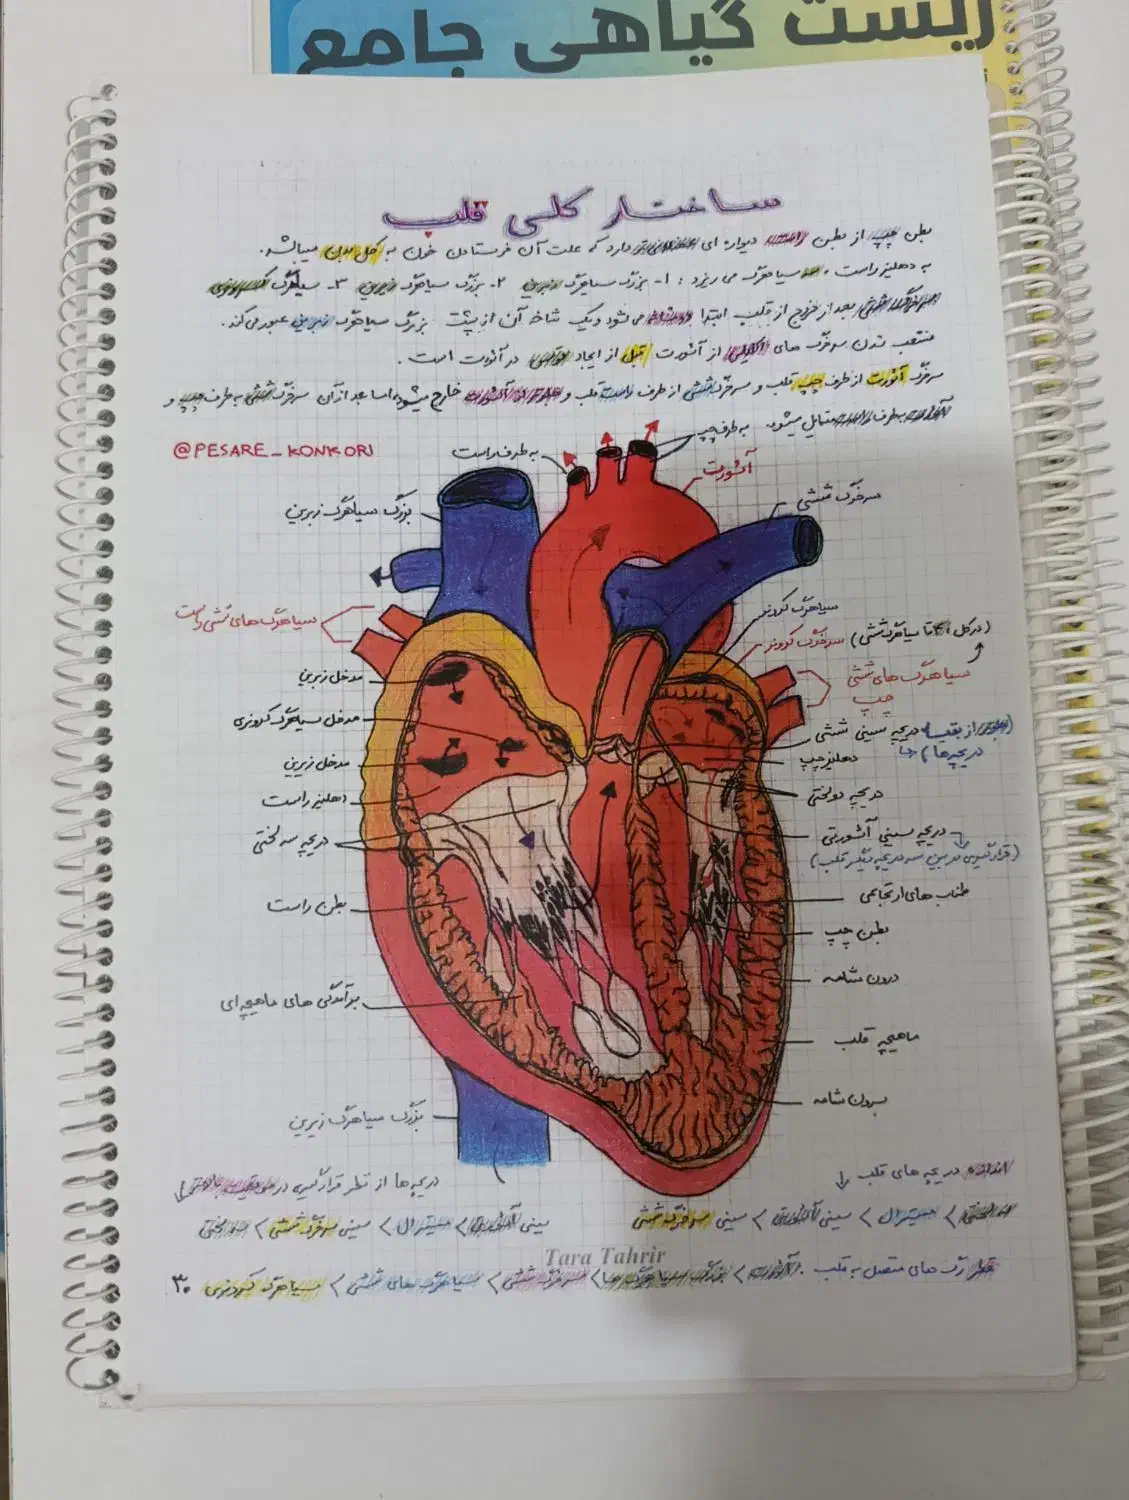 زیست گیاهی جامع
ساختار کلی قلب
بطن چپ از بطن راست دیواره ای ضخیم تر دارد که علت آن فرستادن خون به کل بدن میباشد.
به دهلیز راست، سیاهرگ می ریزد : ۱- بزرگ سیاهرگ زبرین ۲- بزرگ سیاهرگ زیرین ۳- سیاهرگ کرونری
سرخرگ ششی بعد از خروج از قلب ابتدا دو شاخه می شود و یک شاخه آن از پشت بزرگ سیاهرگ زبرین عبور می کند.
منشعب شدن سرخرگ های اکلیلی از آئورت قبل از ایجاد قوس در آئورت است.
سرخرگ آئورت از طرف چپ قلب و سرخرگ ششی از طرف راست قلب و جلوتر از آئورت خارج میشود اما بعد از آن سرخرگ ششی به طرف چپ و
آئورت به طرف راست متمایل میشود.
به طرف چپ
@PESARE_KONKORI
به طرف راست
آئورت
سرخرگ ششی
بزرگ سیاهرگ زبرین
سیاهرگ کرونر
سیاهرگ های ششی راست
سرخرگ کرونر
(در کل ۴ تا سیاهرگ ششی)
سیاهرگ های ششی
چپ
مدخل زبرین
مدخل سیاهرگ کرونری
دریچه سینی ششی
(جلوتر از بقیه
دریچه‌ها)
مدخل زیرین
دهلیز چپ
دهلیز راست
دریچه دولختی
دریچه سه لختی
دریچه سینی آئورتی
(قرارگیری در بین سه دریچه دیگر قلب)
بطن راست
طناب های ارتجاعی
بطن چپ
درون شامه
برآمدگی های ماهیچه ای
ماهیچه قلب
برون شامه
بزرگ سیاهرگ زیرین
اندازه دریچه های قلب
سه لختی > میترال > سینی آئورتی > سینی سرخرگ ششی
دریچه‌ها از نظر قرارگیری در موقعیت
سینی آئورتی > میترال > سینی سرخرگ ششی > سه لختی
Tara Tahrir
قطر رگ های متصل به قلب: آئورت > بزرگ سیاهرگ ها > سرخرگ ششی > سیاهرگ های ششی > سیاهرگ کرونری
۳۰